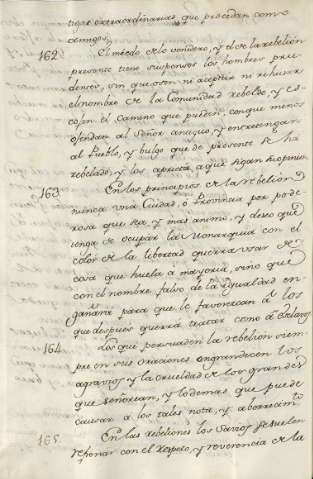 tigos extraordinarios que procedan como
enemigos.
162 El miedo de lo venidero, y el de la rebelion
presente tiene suspensos los hombres pru
dentes, sin que osen ni aceptar ni rehusar
el nombre de la Comunidad rebelde, y es-
cojen el camino que pueden, conque menos
ofendan al Señor antiguo, y entretengan
al Pueblo, y bulgo que de presente se ha
rebelado, y los aprieta a que digan su opinion
163 En los principios de la rebelion
nunca una Ciudad, o Provincia por pode
rosa que sea, y mas animo, y deseo que
tenga de ocupar la Monarquia con el
color de la libertad querra usar de
cosa que huela a mayoria, sino que
con el nombre falso de la igualdad en-
gañara para que le favorezcan a los
que despues querra tratar como a esclavos
164 Los que persuaden la rebelion siem
pre en sus oraciones engrandecen los
agravios, y la crueldad de los grandes
que señorean, y lo demas que puede
causar a los tales nota, y aborrecim.to
165 En las rebeliones los Savios suelen
reponar con el respeto, y reverencia de la